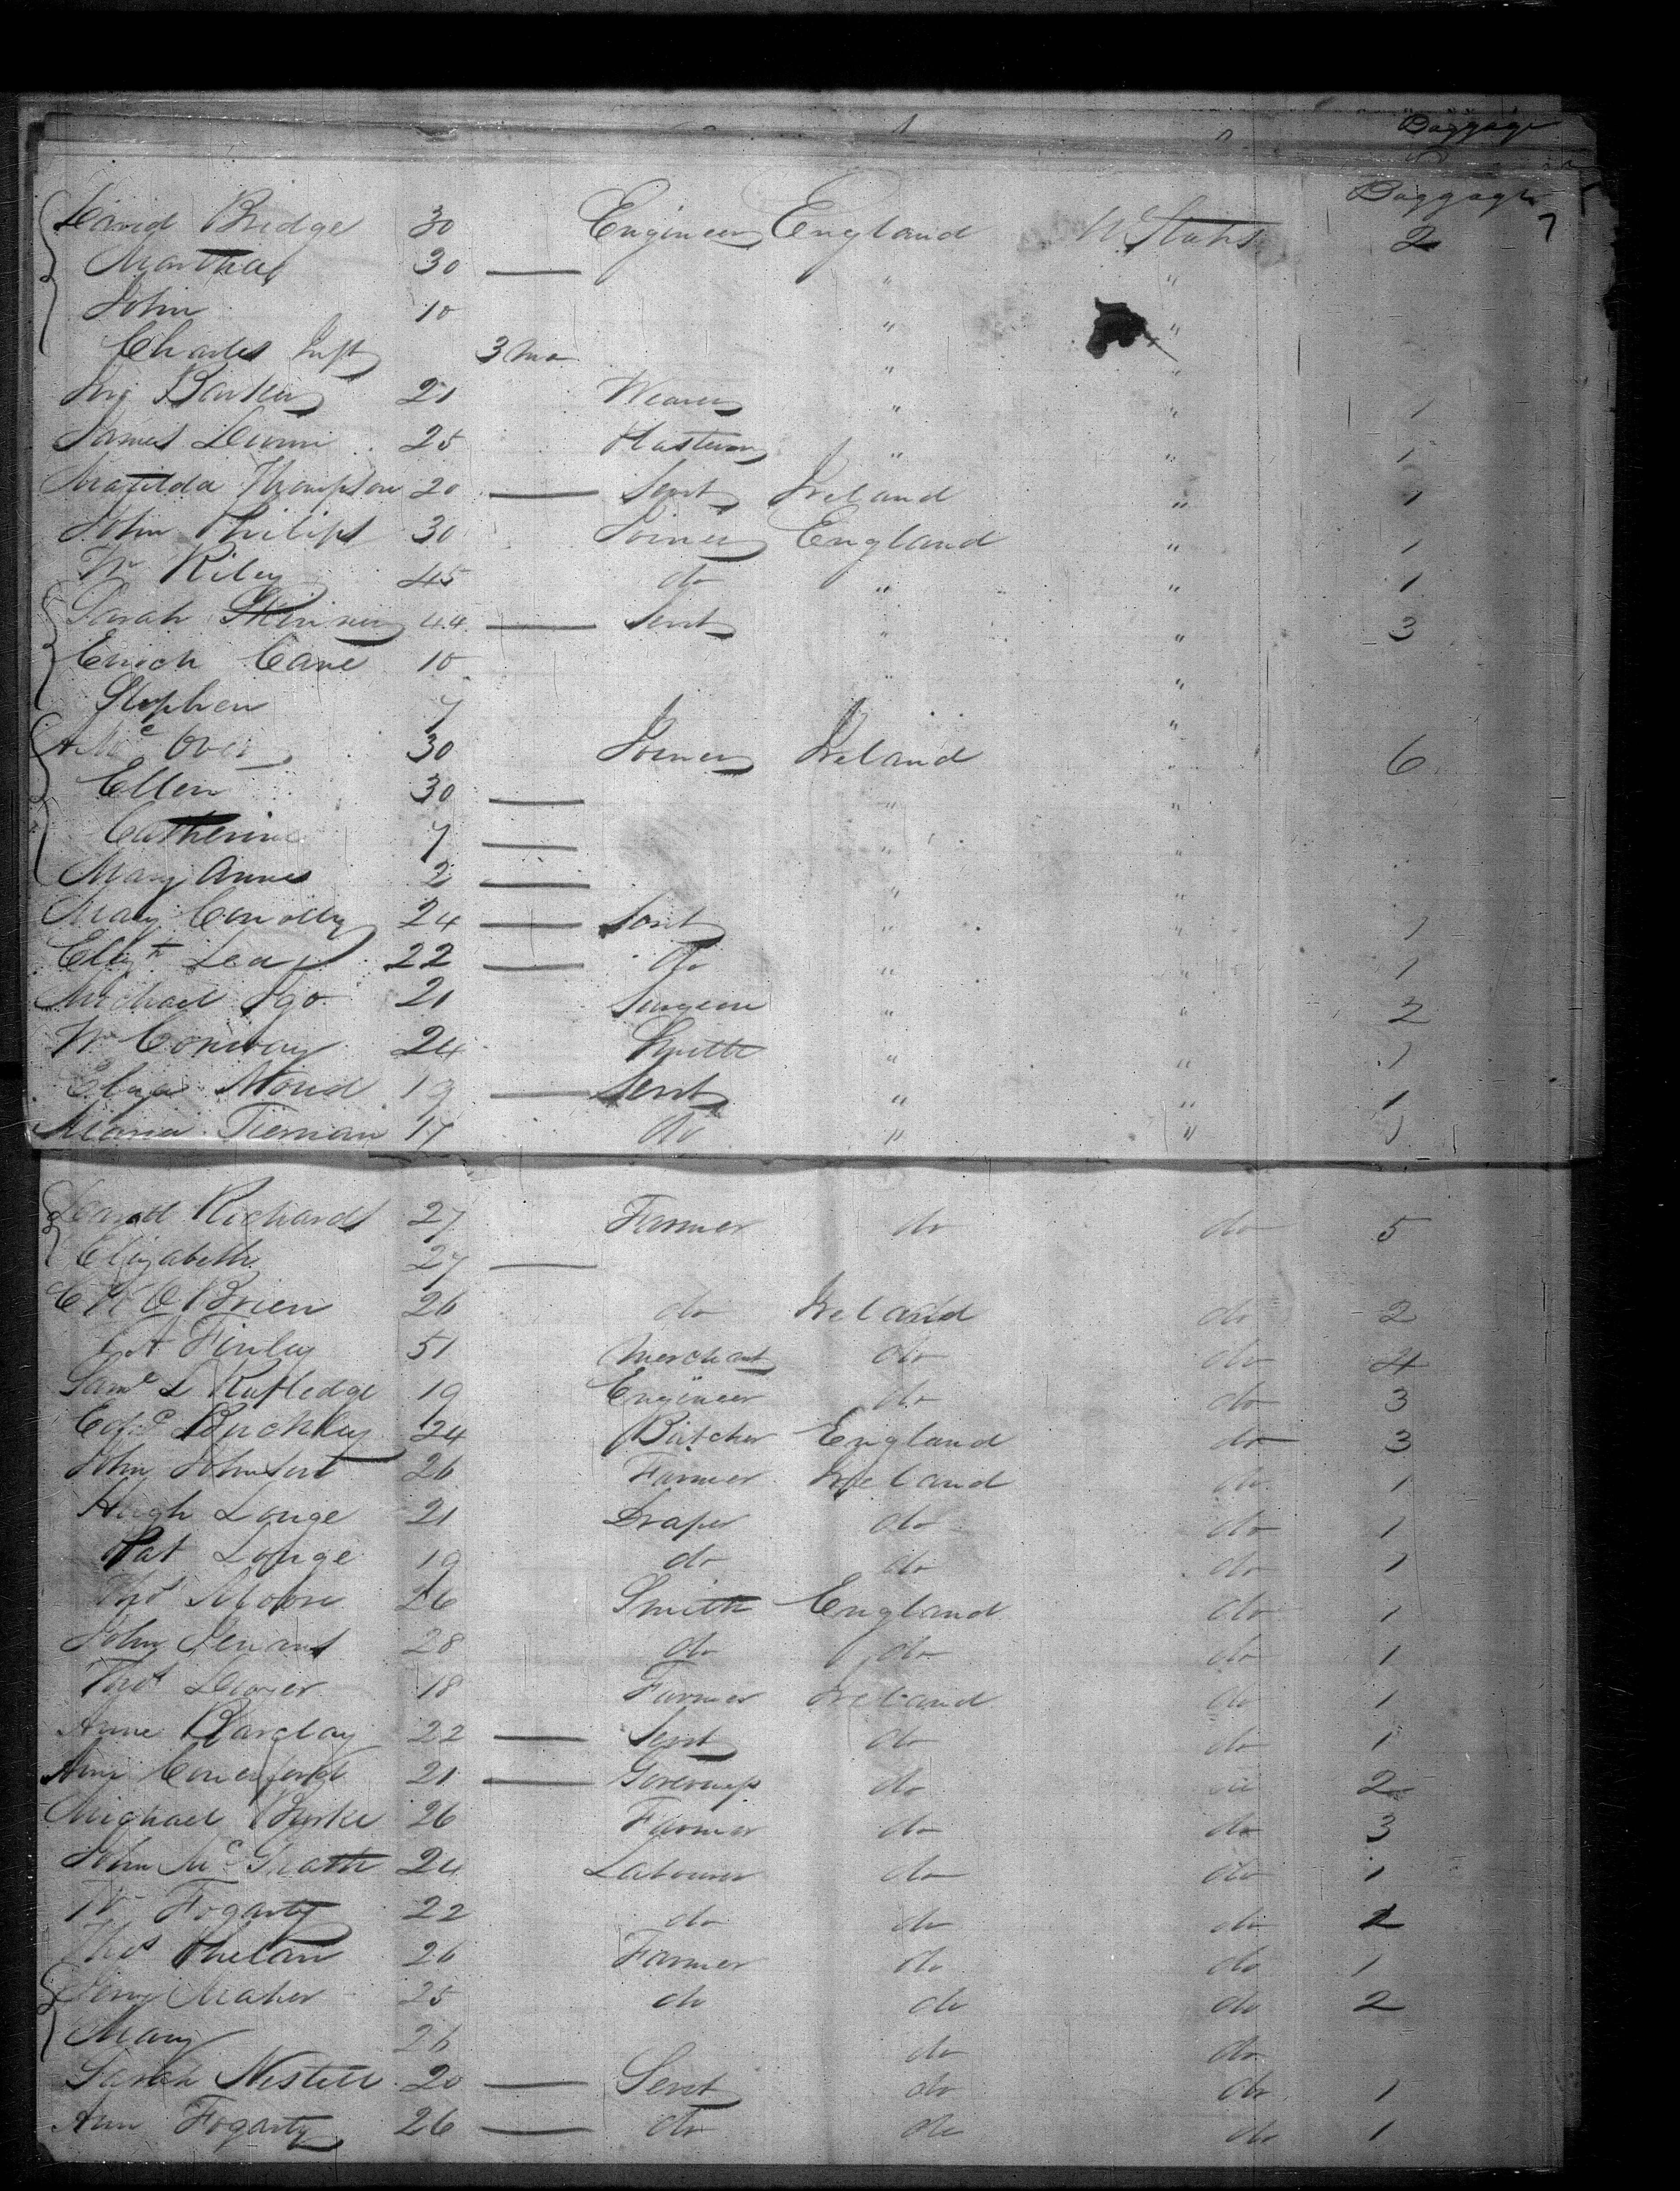 Baggage
Baggage 7
David Bridge 30 Engineer England U States 2
Martha 30 — " "
John 10 " "
Charles Inft 3 mo " "
21 Weaver " " 1
James Dunn 25 " " 1
Matilda Thompson 20 — Servt Ireland " 1
John Philips 30 Joiner England " 1
Wm Riley 45 do " " 1
Sarah Skinner 44 — Servt " " 3
Enoch Cane 10 " "
Stephen 7 "
30 Joiner Ireland " 6
Ellen 30 — " "
Catherine 7 — " "
Mary Anne 2 — " "
Mary Conolly 24 — Servt " " 1
Lea 22 — do " " 1
Michael Igo 21 Surgeon " " 2
Wm Conway 24 Smith " " 1
Eliza 19 — Servt " " 1
Maria Tiernan 17 do " " 1
Richards 27 Farmer do do 5
Elizabeth 27 —
O'Brien 26 do Ireland do 2
Finlay 51 Merchant do do 4
Saml L Rutledge 19 Engineer do do 3
Edwd Buckley 24 Butcher England do 3
John Johnson 26 Farmer Ireland do 1
Hugh Longe 21 Draper do do 1
Pat Longe 19 do do do 1
Thos Moore 26 Smith England do 1
John 28 do do do 1
Thos 18 Farmer Ireland do 1
Anne Barclay 22 — Servt do do 1
Ann Comerford 21 — Governess do do 2
Michael Burke 26 Farmer do do 3
John McGrath 24 Labourer do do 1
Wm Fogarty 22 do do do 2
Thos Phelan 26 Farmer do do 1
Maher 25 do do do 2
Mary 26 do do
Sarah 20 — Servt do do 1
Ann Fogarty 26 — do do do 1